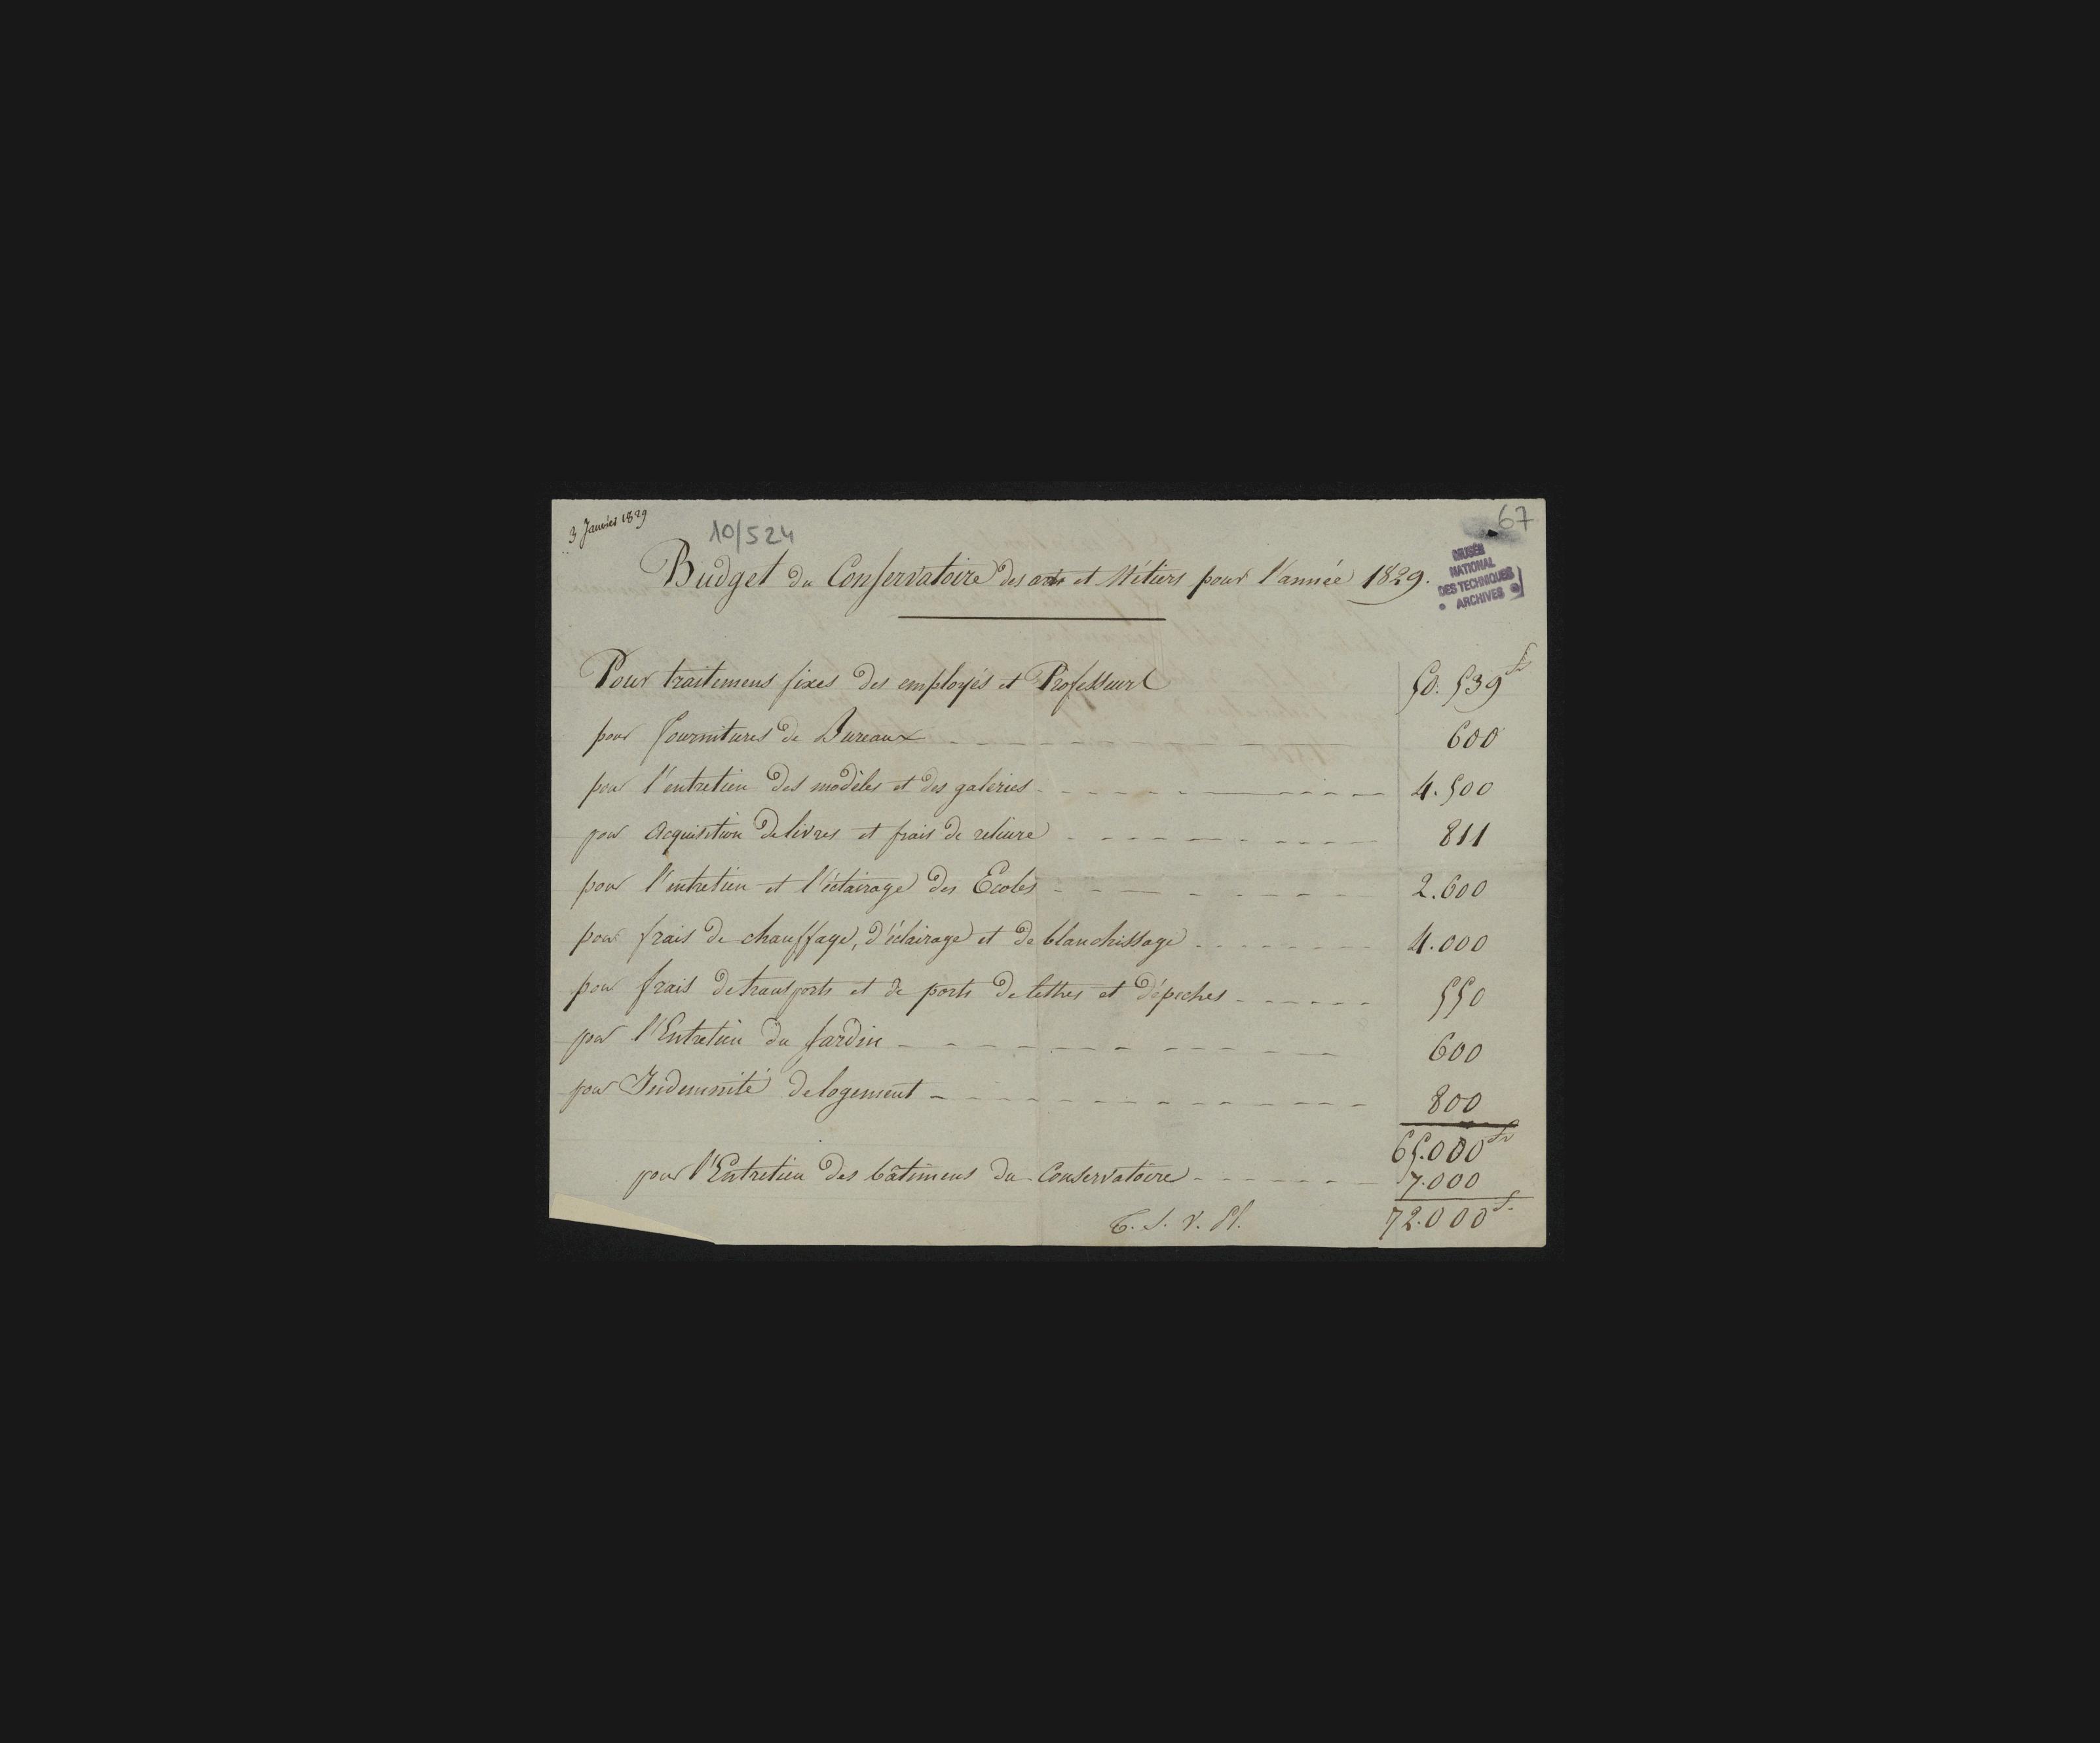 3 Janvier 1829
10/524
67
MUSÉE
NATIONAL
DES TECHNIQUES
ARCHIVES
Budget du Conservatoire des arts et Métiers pour l'année 1829.
Pour traitemens fixes des employés et Professeurs 50.539 fr
pour fournitures de Bureaux 600
pour l'entretien des modèles et des galeries 4.500
pour acquisition de livres et frais de reliure 811
pour l'entretien et l'éclairage des Ecoles 2.600
pour frais de chauffage, d'éclairage et de blanchissage 4.000
pour frais de transports et de ports de lettres et dépeches 550
pour l'Entretien du Jardin 600
pour Indemnité de logement 800
65.000 fr
pour l'Entretien des bâtimens du Conservatoire 7.000
72.000 f.
T. S. V. Pl.